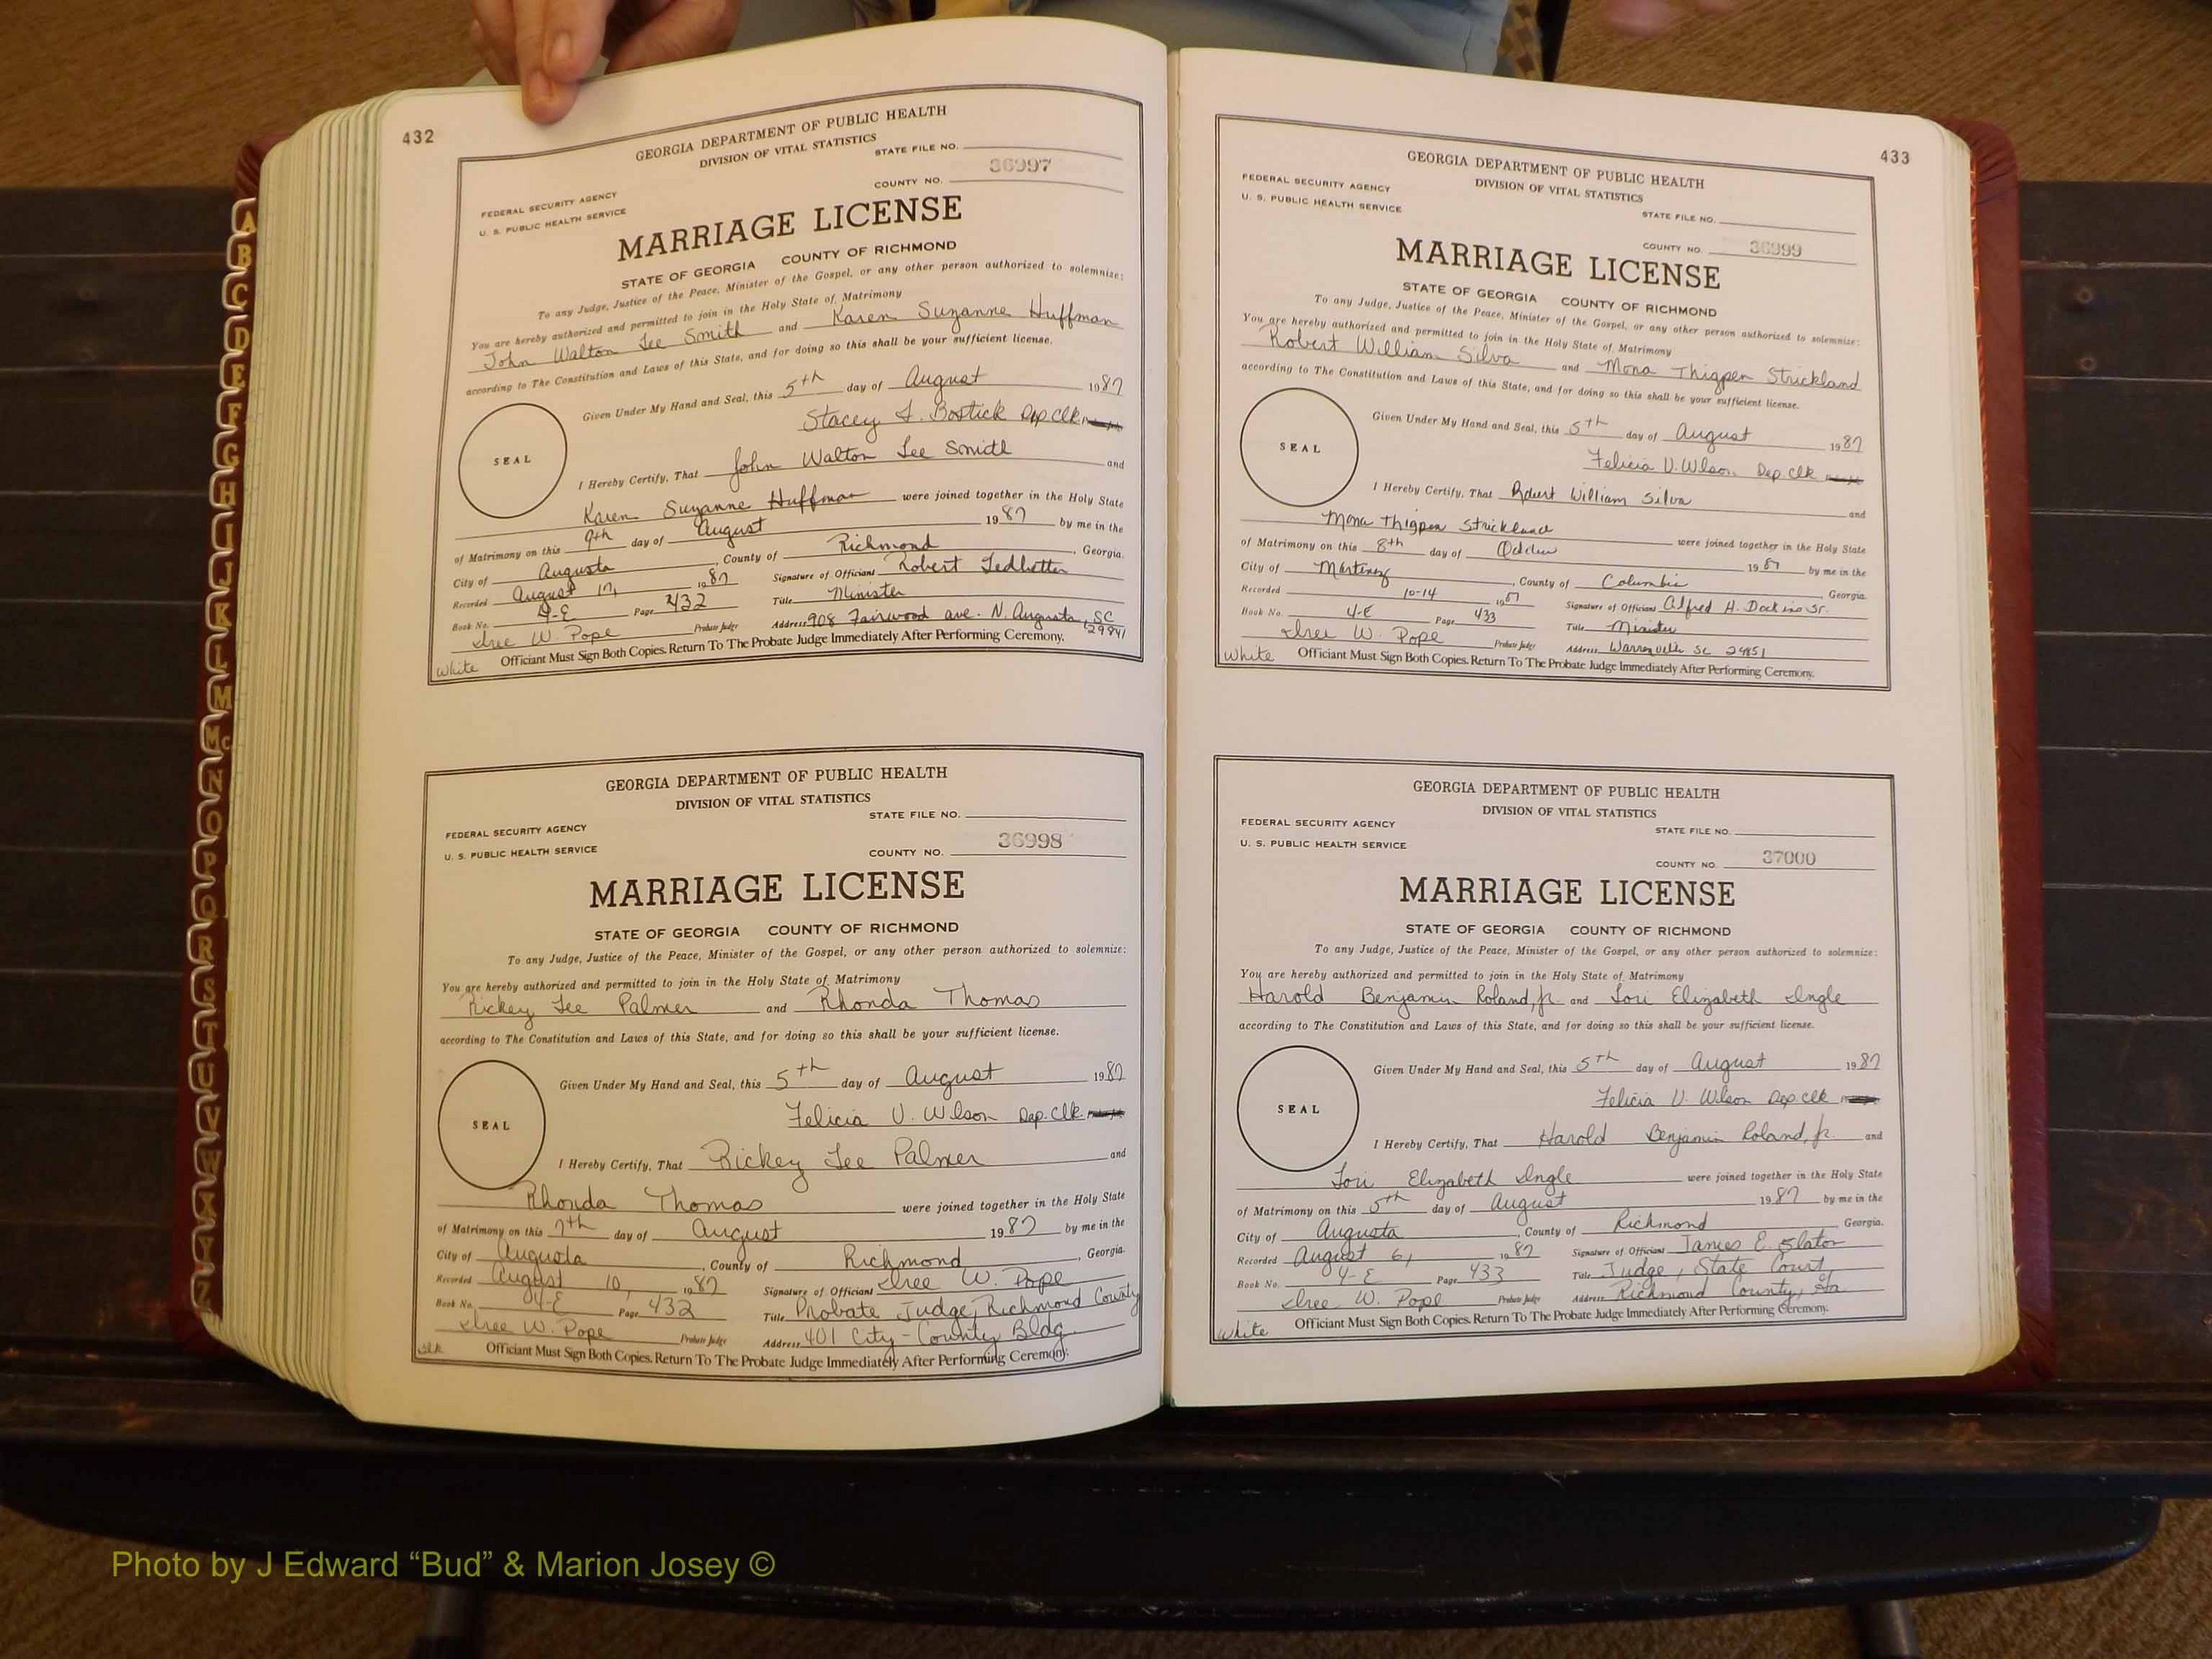 432
GEORGIA DEPARTMENT OF PUBLIC HEALTH
DIVISION OF VITAL STATISTICS
STATE FILE NO.
36997
COUNTY NO.
FEDERAL SECURITY AGENCY
U. S. PUBLIC HEALTH SERVICE
MARRIAGE LICENSE
STATE OF GEORGIA COUNTY OF RICHMOND
To any Judge, Justice of the Peace, Minister of the Gospel, or any other person authorized to solemnize:
You are hereby authorized and permitted to join in the Holy State of Matrimony
John Walton Lee Smith and Karen Suzanne Huffman
according to The Constitution and Laws of this State, and for doing so this shall be your sufficient license.
Given Under My Hand and Seal, this 5th day of August 1987
Stacey L. Bostick Dep Clk
SEAL
I Hereby Certify, That John Walton Lee Smith and
Karen Suzanne Huffman were joined together in the Holy State
of Matrimony on this 9th day of August 1987 by me in the
City of Augusta, County of Richmond, Georgia.
Recorded August 17, 1987 Signature of Officiant Robert Ledbetter
Book No. 4-E Page 432 Title Minister
W. Pope Probate Judge Address 908 Fairwood ave. N. Augusta, SC 29841
White Officiant Must Sign Both Copies. Return To The Probate Judge Immediately After Performing Ceremony.
GEORGIA DEPARTMENT OF PUBLIC HEALTH
DIVISION OF VITAL STATISTICS
STATE FILE NO.
FEDERAL SECURITY AGENCY
U. S. PUBLIC HEALTH SERVICE
COUNTY NO. 36998
MARRIAGE LICENSE
STATE OF GEORGIA COUNTY OF RICHMOND
To any Judge, Justice of the Peace, Minister of the Gospel, or any other person authorized to solemnize:
You are hereby authorized and permitted to join in the Holy State of Matrimony
Rickey Lee Palmer and Rhonda Thomas
according to The Constitution and Laws of this State, and for doing so this shall be your sufficient license.
Given Under My Hand and Seal, this 5th day of August 1987
Felicia V. Wilson Dep. Clk.
SEAL
I Hereby Certify, That Rickey Lee Palmer and
Rhonda Thomas were joined together in the Holy State
of Matrimony on this 7th day of August 1987 by me in the
City of Augusta, County of Richmond, Georgia.
Recorded August 10, 1987 Signature of Officiant W. Pope
Book No. 4-E Page 432 Title Probate Judge, Richmond County
W. Pope Probate Judge Address 401 City-County Bldg
Blk Officiant Must Sign Both Copies. Return To The Probate Judge Immediately After Performing Ceremony.
433
GEORGIA DEPARTMENT OF PUBLIC HEALTH
DIVISION OF VITAL STATISTICS
FEDERAL SECURITY AGENCY
U. S. PUBLIC HEALTH SERVICE
STATE FILE NO.
COUNTY NO. 36999
MARRIAGE LICENSE
STATE OF GEORGIA COUNTY OF RICHMOND
To any Judge, Justice of the Peace, Minister of the Gospel, or any other person authorized to solemnize:
You are hereby authorized and permitted to join in the Holy State of Matrimony
Robert William Silva and Mona Thigpen Strickland
according to The Constitution and Laws of this State, and for doing so this shall be your sufficient license.
Given Under My Hand and Seal, this 5th day of August 1987
Felicia V. Wilson Dep Clk
SEAL
I Hereby Certify, That Robert William Silva and
Mona Thigpen Strickland were joined together in the Holy State
of Matrimony on this 8th day of October 1987 by me in the
City of Martinez, County of Columbia Georgia.
Recorded 10-14 1987 Signature of Officiant Alfred H. Dockins Sr.
Book No. 4-E Page 433 Title Minister
W. Pope Probate Judge Address Warrenville SC 29851
White Officiant Must Sign Both Copies. Return To The Probate Judge Immediately After Performing Ceremony.
GEORGIA DEPARTMENT OF PUBLIC HEALTH
DIVISION OF VITAL STATISTICS
FEDERAL SECURITY AGENCY
STATE FILE NO.
U. S. PUBLIC HEALTH SERVICE
COUNTY NO. 37000
MARRIAGE LICENSE
STATE OF GEORGIA COUNTY OF RICHMOND
To any Judge, Justice of the Peace, Minister of the Gospel, or any other person authorized to solemnize:
You are hereby authorized and permitted to join in the Holy State of Matrimony
Harold Benjamin Roland, Jr. and Lori Elizabeth Ingle
according to The Constitution and Laws of this State, and for doing so this shall be your sufficient license.
Given Under My Hand and Seal, this 5th day of August 1987
Felicia V. Wilson Dep Clk
SEAL
I Hereby Certify, That Harold Benjamin Roland, Jr. and
Lori Elizabeth Ingle were joined together in the Holy State
of Matrimony on this 5th day of August 1987 by me in the
City of Augusta, County of Richmond Georgia.
Recorded August 6, 1987 Signature of Officiant James E. Slaton
Book No. 4-E Page 433 Title Judge, State Court of
W. Pope Probate Judge Address Richmond County, Ga
White Officiant Must Sign Both Copies. Return To The Probate Judge Immediately After Performing Ceremony.
A
B
C
D
E
F
G
H
I
J
K
L
M
Mc
N
O
P
Q
R
S
T
U
V
W
X
Y
Z
Photo by J Edward “Bud” & Marion Josey ©